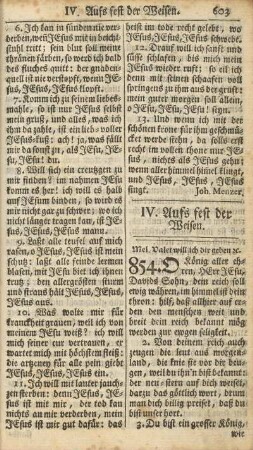 IV. Aufs fest der Weisen. 603
6. Ich kan in sündennie ver-
derben, weñ JEsus mit in beicht-
stuhl tritt; sein blut soll meine
thränen färben, so werd ich bald
des fluches quitt: der gnaden-
quell ist nie verstopft, wenn JE-
sus, JEsus, JEsus klopft.
7. Komm ich zu seinem liebes-
mahle, so ist sein fleisch und
blut mein, und alles, was ich
ihm da zahle, ist ein
JEsus
da zu, als JEsu, JEsu, JE-
su, JEsu! du.
8. Will sich ein creutzgen zu
mir finden? im nahmen JEsu
komm es her! ich will es bald
an JEsum binden, so wird es
mir nicht gar zu schwer; wo ich
nicht länger tragen kan, ist JE-
sus, JEsus, JEsus, mann.
9. Laßt alle teufel auf mich
sehen, JEsus ist mein
schutz; laßt alle feinde lermen
blasen, mit JEsu biet ich ihnen
trutz: den allergrösten sturm
und strauß hält JEsus, JEsus,
JEsus aus.
10. Was wolte mir für
kranckheit grauen, weil ich von
meinem JEsu weiß? ich will
seiner cur vertrauen, er
wartet mich mit höchstem fleiß:
die artzeney für alle pein giebt
JEsus, JEsus, JEsus ein.
11. Ich will mit lauter jauch-
zen sterben: denn JEsus, JE-
sus ist mit mir, der tod kan
nichts an mir verderben, mein
JEsus ist mir gut dafür: das
heist im tode recht gelebt, wo
JEsus, JEsus, JEsus schwebt.
12. Drauf will ich sanft und
süsse schlafen, und wo ich schla-
fe, ist JEsus hier, so eil ich denn
mit seinen schaafen voll
springens zu ihm aus der gruft:
mein guter morgen soll allein,
o JEsu, JEsu, JEsu! seyn.
13. Und wenn ich mit der
schönen krone für ihm geschmü-
cket werde stehn, denn soll in ei-
nem vollen thone nichts als JE-
sus, nichts als JEsus gehn;
wenn aller himmel hinnel klingt,
und JEsus, JEsus, JEsus
singt. Joh. Mentzer.
IV. Aufs fest der
Weisen.
Mel. Valet will ich dir geben ꝛc.
854. O König aller eh-
ren, HErr JEsu,
Davids Sohn, dein reich soll
ewig währen, im himmel ist dein
thron: hilf, daß allhier auf er-
den den menschen weit und
breit dein reich bekannt mög
werden zur ewgen seligkeit.
2. Von deinem reich auch
zeugen die leut aus morgen-
land, die knie sie vor dir beu-
gen, weil du ihn'n bist bekannt:
der neu-stern auf dich weiset,
dazu das göttlich wort, drum
man dich billig preiset, daß du
bist unser hort.
3. Du bist ein grosser König,
wie